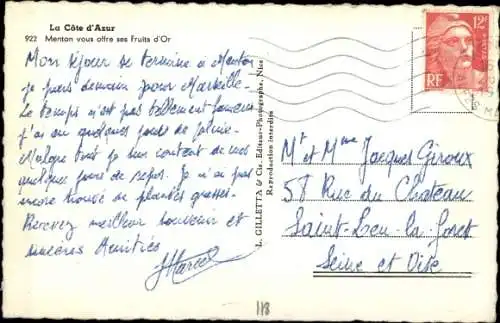 La Côte d'Azur
922 Menton vous offre ses Fruits d'Or
Mon séjour se termine à Menton
je pars demain pour Marseille.
Le temps n'est pas tellement fameux
j'ai eu quelques jours de pluie.
Malgré tout je suis content de mes
quelques jours de repos. Je n'ai pas
encore trouvé de plantes grasses.
Recevez meilleur souvenir et
sincères Amitiés
Marcel
L. GILLETTA & Cie, Editeur-Photographe, Nice
Reproduction interdite
12F
RF
Mr et Mme Jacques Giroux
58 Rue du Chateau
Saint-Leu la Foret
Seine et Oise
118